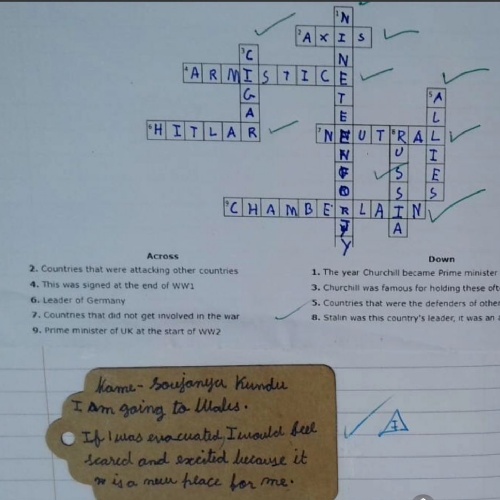 1 N
2 A X I S
3 C
4 A R M I S T I C E
5 A
6 H I T L A R
7 N E U T R A L
8
9 C H A M B E R L A I N
Across
2. Countries that were attacking other countries
4. This was signed at the end of WW1
6. Leader of Germany
7. Countries that did not get involved in the war
9. Prime minister of UK at the start of WW2
Down
1. The year Churchill became Prime minister
3. Churchill was famous for holding these
5. Countries that were the defenders of other
8. Stalin was this country's leader, it was an
Name - Soujanya Kundu
I am going to Wales.
If I was evacuated, I would feel
scared and excited because it
is a new place for me.